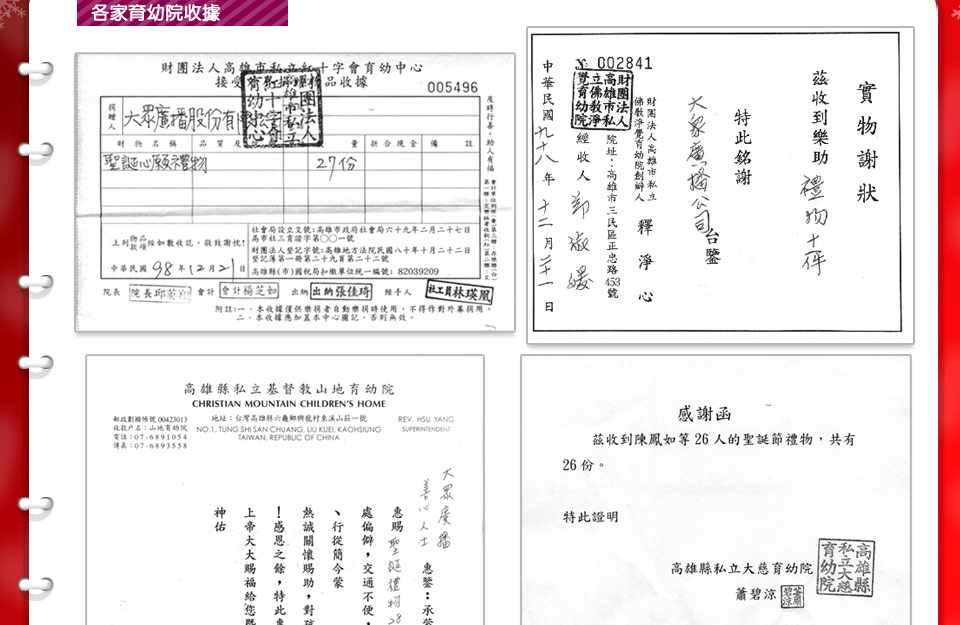 各家育幼院收據
財團法人高雄市私立紅十字會育幼中心
接受
物品收據
005496
捐贈人
大眾廣播股份有限公司
財物名稱
品質及
量
折合現金
備註
聖誕心願禮物
27份
及時行善，助人有福
上列物品款項經如數收訖，敬致謝忱！
中華民國98年12月21日
社會局設立文號：高雄市政府社會局六十九年二月二十七日
高市社三育證字第○○一號
財團法人登記字號：高雄地方法院民國八十年十月二十二日
登記簿第一冊第二十九頁第二十二號
高雄縣(市)國稅局扣繳單位統一編號：82039209
院長
會計
會計楊芝如
出納
出納張佳琦
經手人
社工員林瑛凰
附註：一、本收據僅供樂捐者自動樂捐時使用，不得作對外募捐用。
二、本收據應加蓋本中心圖記，否則無效。
實物謝狀
茲收到樂助
禮物十件
特此銘謝
大眾廣播公司
台鑒
財團法人高雄市私立
佛教淨覺育幼院創辦人
釋淨心
院址：高雄市三民區正忠路453號
經收人
№ 002841
財團法人高雄市私立佛教淨覺育幼院
中華民國九十八年十二月二十一日
高雄縣私立基督教山地育幼院
CHRISTIAN MOUNTAIN CHILDREN'S HOME
郵政劃撥帳號 00423013
收款戶名：山地育幼院
電話：07-6891054
傳真：07-6893558
地址：台灣高雄縣六龜鄉興龍村東溪山莊一號
NO.1, TUNG SHI SAN CHUANG, LIU KUEI, KAOHSIUNG
TAIWAN, REPUBLIC OF CHINA
REV. HSU YANG
SUPERINTENDENT
大眾廣播
善心人士
惠鑒：承蒙
惠賜聖誕禮物28
處偏僻，交通不便，
、行從簡今蒙
熱誠關懷賜助，對孩
！感恩之餘，特此專
上帝大大賜福給您暨
神佑
感謝函
茲收到陳鳳如等 26 人的聖誕節禮物，共有
26 份。
特此證明
高雄縣私立大慈育幼院
蕭碧涼
高雄縣私立大慈育幼院
蕭碧涼